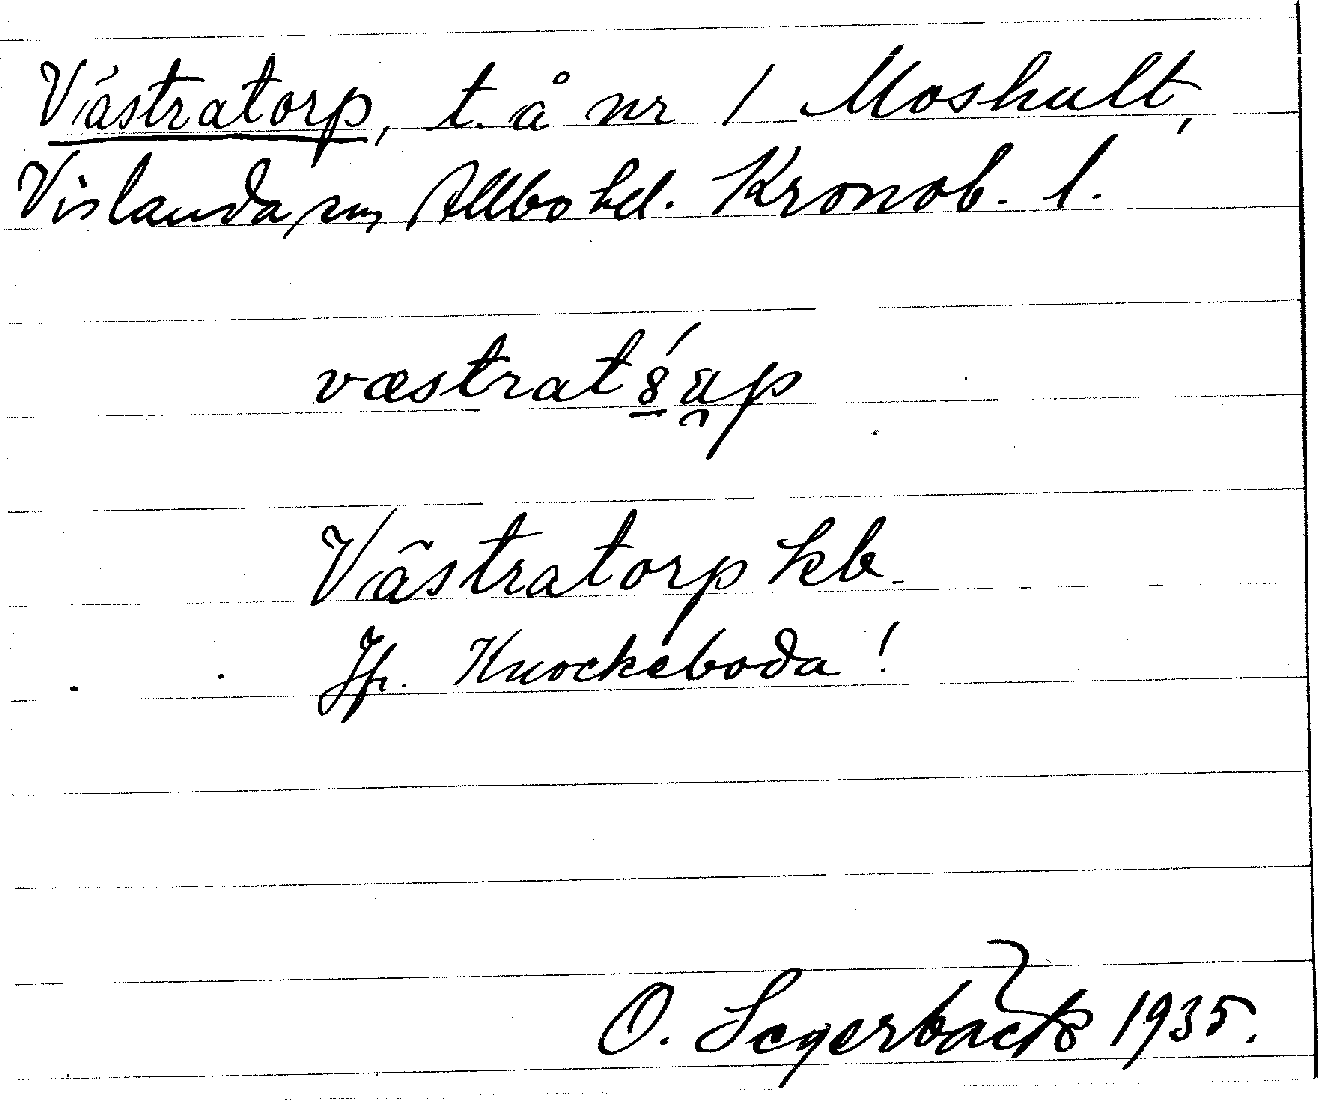 Västratorp, t. å nr 1 Moshult,
Vislanda sn, Allbo hd. Kronob. l.
Västratorp kb.
Jfr. Knockeboda!
O. Segerbäck 1935.